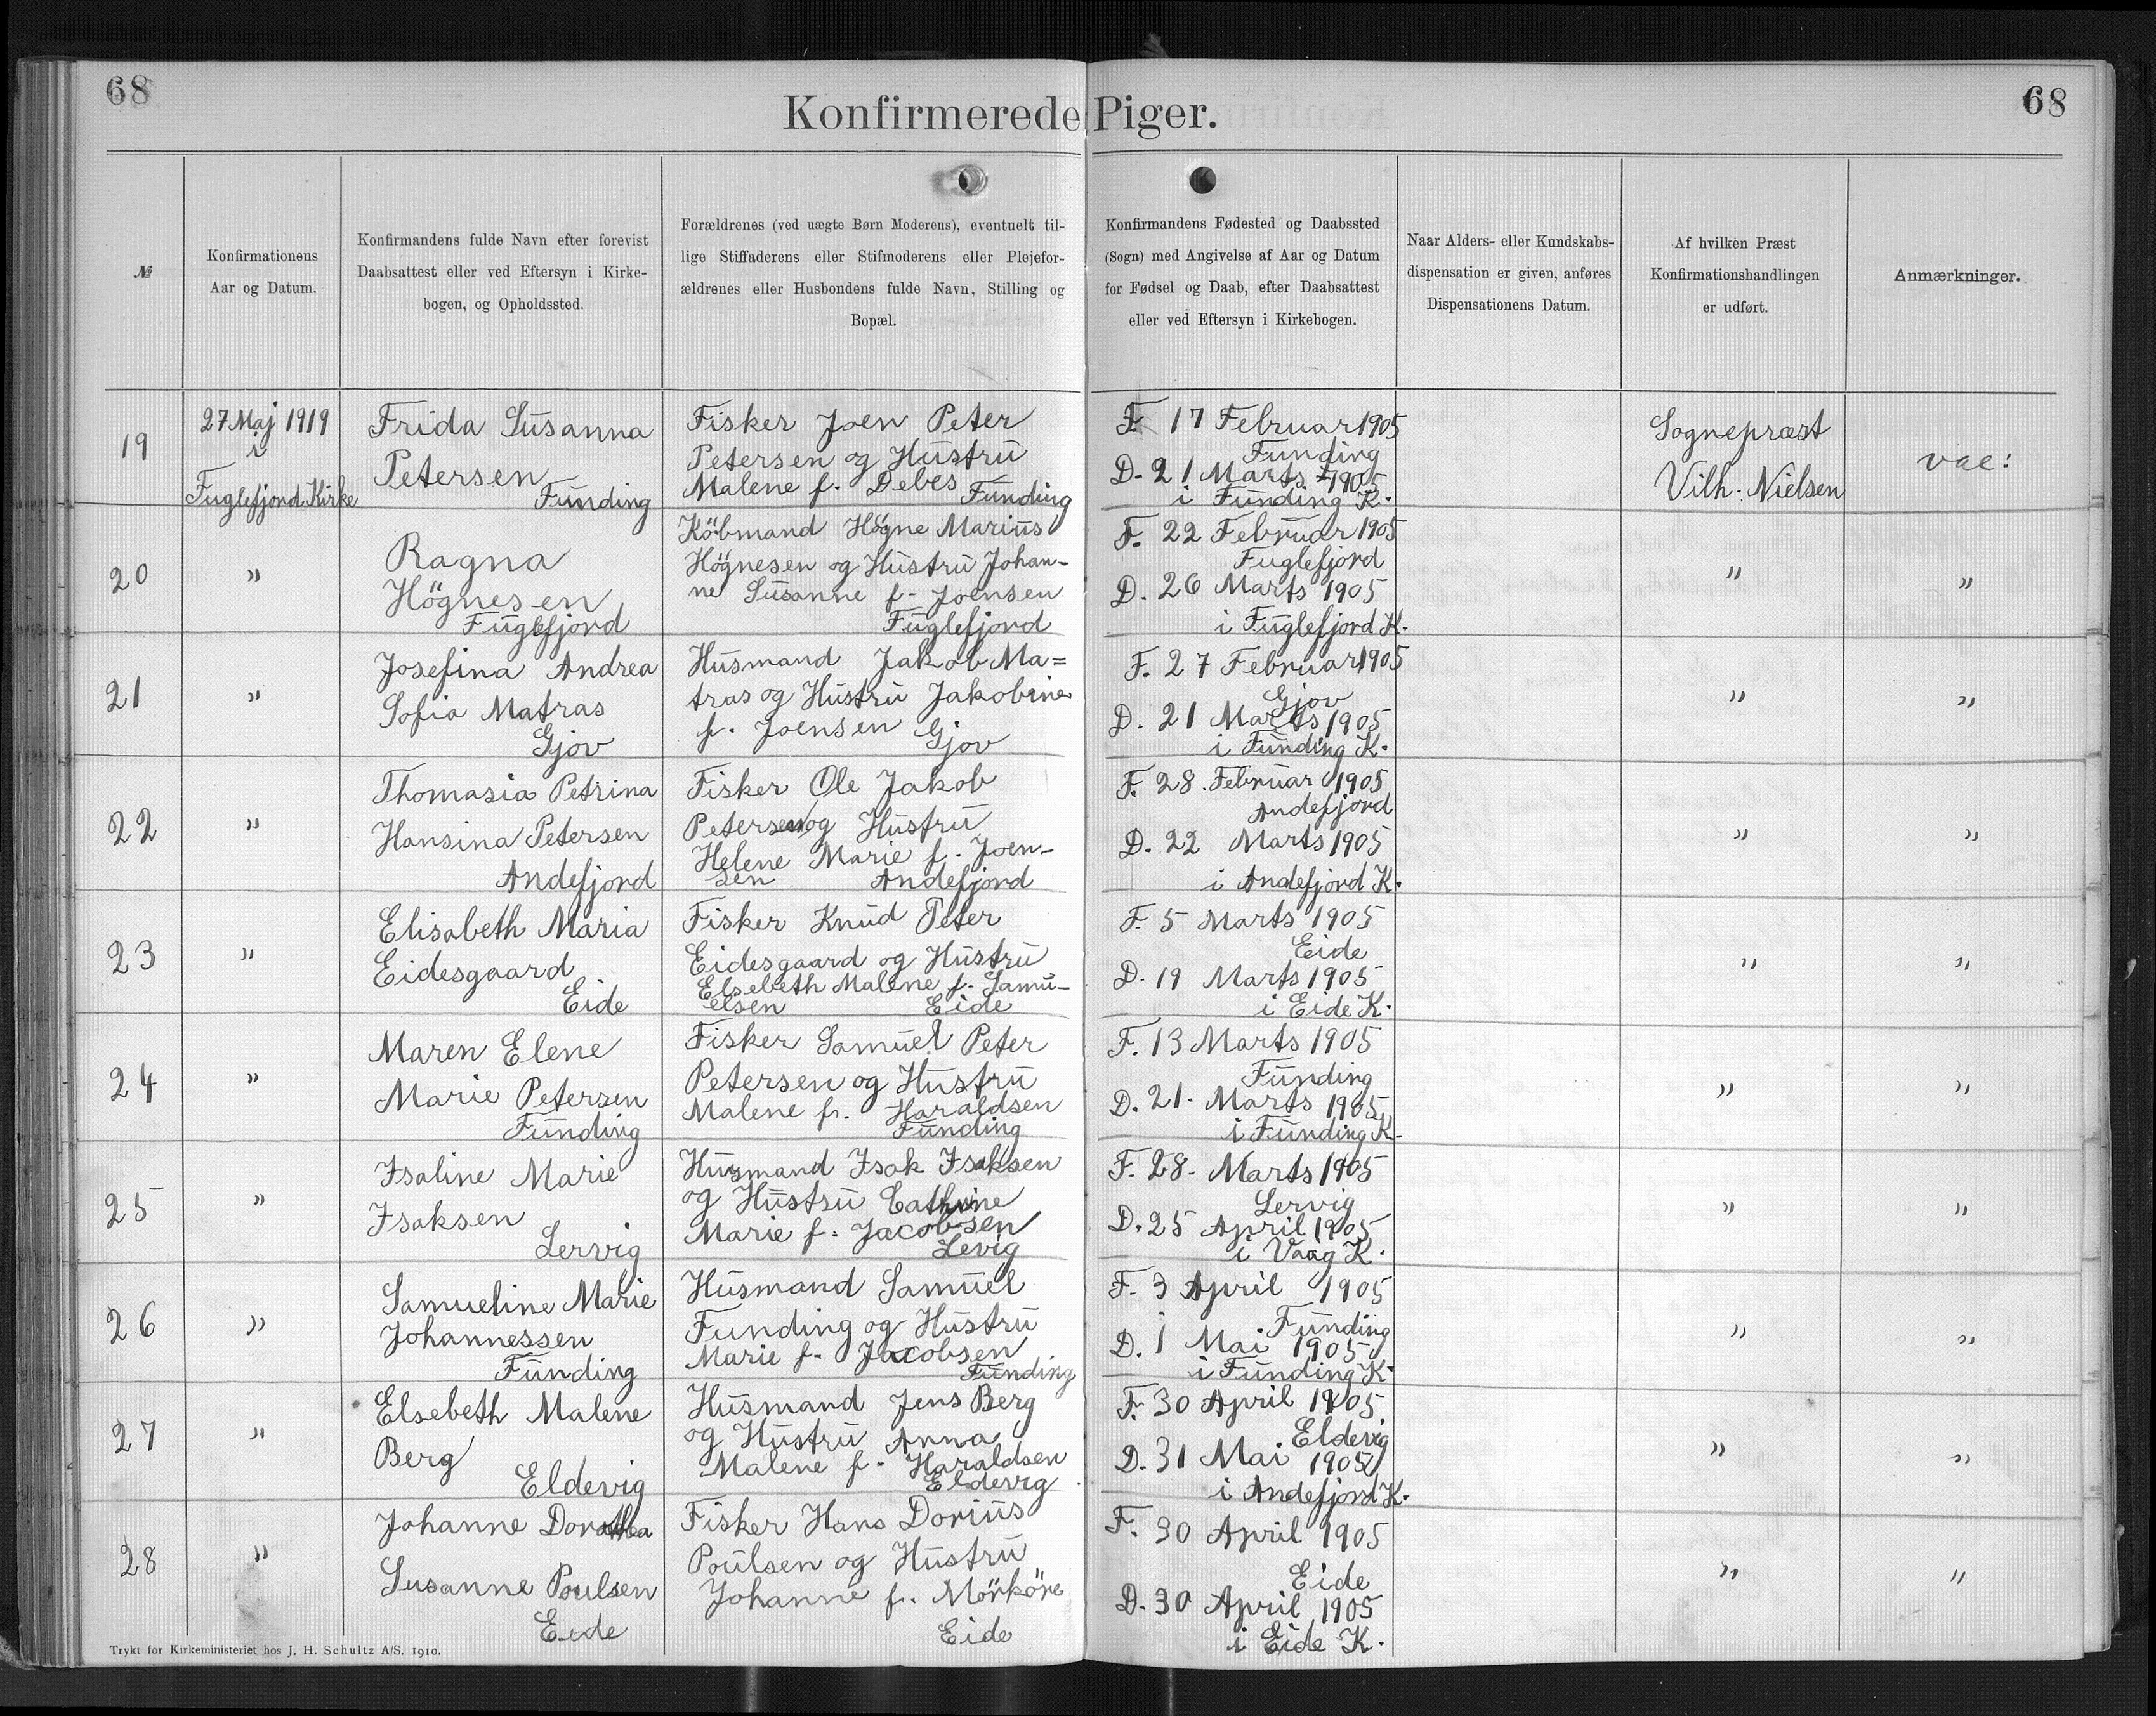 68
Konfirmerede Piger.
68
№
Konfirmationens
Aar og Datum.
Konfirmandens fulde Navn efter forevist
Daabsattest eller ved Eftersyn i Kirke-
bogen, og Opholdssted.
Forældrenes (ved uægte Børn Moderens), eventuelt til-
lige Stiffaderens eller Stifmoderens eller Plejefor-
ældrenes eller Husbondens fulde Navn, Stilling og
Bopæl.
Konfirmandens Fødested og Daabssted
(Sogn) med Angivelse af Aar og Datum
for Fødsel og Daab, efter Daabsattest
eller ved Eftersyn i Kirkebogen.
Naar Alders- eller Kundskabs-
dispensation er given, anføres
Dispensationens Datum.
Af hvilken Præst
Konfirmationshandlingen
er udført.
Anmærkninger.
19
27 Maj 1919
i
Fuglefjord Kirke
Frida Susanna
Petersen
Funding
Fisker Joen Peter
Petersen og Hustru
Malene f. Debes
Funding
F. 17 Februar 1905
Funding
D. 21 Marts 1905
i Funding K.
Sognepræst
Vilh. Nielsen
vac:
20
"
Ragna
Högnesen
Fuglefjord
Köbmand Högne Marius
Högnesen og Hustru Johan-
ne Susanne f. Joensen
Fuglefjord
F. 22 Februar 1905
Fuglefjord
D. 26 Marts 1905
i Fuglefjord K.
"
"
21
"
Josefina Andrea
Sofia Matras
Gjov
Husmand Jakob Ma=
tras og Hustru Jakobine
f. Joensen
Gjov
F. 27 Februar 1905
Gjov
D. 21 Marts 1905
i Funding K.
"
"
22
"
Thomasia Petrina
Hansina Petersen
Andefjord
Fisker Ole Jakob
Petersen og Hustru
Helene Marie f. Joen-
sen Andefjord
F. 28. Februar 1905
Andefjord
D. 22 Marts 1905
i Andefjord K.
"
"
23
"
Elisabeth Maria
Eidesgaard
Eide
Fisker Knud Peter
Eidesgaard og Hustru
Elsebeth Malene f. Samu-
elsen Eide
F. 5 Marts 1905
Eide
D. 19 Marts 1905
i Eide K.
"
"
24
"
Maren Elene
Marie Petersen
Funding
Fisker Samuel Peter
Petersen og Hustru
Malene f. Haraldsen
Funding
F. 13 Marts 1905
Funding
D. 21. Marts 1905
i Funding K.
"
"
25
"
Isaline Marie
Isaksen
Lervig
Husmand Isak Isaksen
og Hustru Cathrine
Marie f. Jacobsen
Levig
F. 28. Marts 1905
Lervig
D. 25 April 1905
i Vaag K.
"
"
26
"
Samueline Marie
Johannessen
Funding
Husmand Samuel
Funding og Hustru
Marie f. Jacobsen
Funding
F. 3 April 1905
i Funding
D. 1 Mai 1905
i Funding K.
"
"
27
"
Elsebeth Malene
Berg
Eldevig
Husmand Jens Berg
og Hustru Anna
Malene f. Haraldsen
Eldevig
F. 30 April 1905
Eldevig
D. 31 Mai 1905
i Andefjord K.
"
"
28
"
Johanne Dorothea
Susanne Poulsen
Eide
Fisker Hans Dorius
Poulsen og Hustru
Johanne f. Mörköre
Eide
F. 30 April 1905
Eide
D. 30 April 1905
i Eide K.
"
"
Trykt for Kirkeministeriet hos J. H. Schultz A/S. 1910.